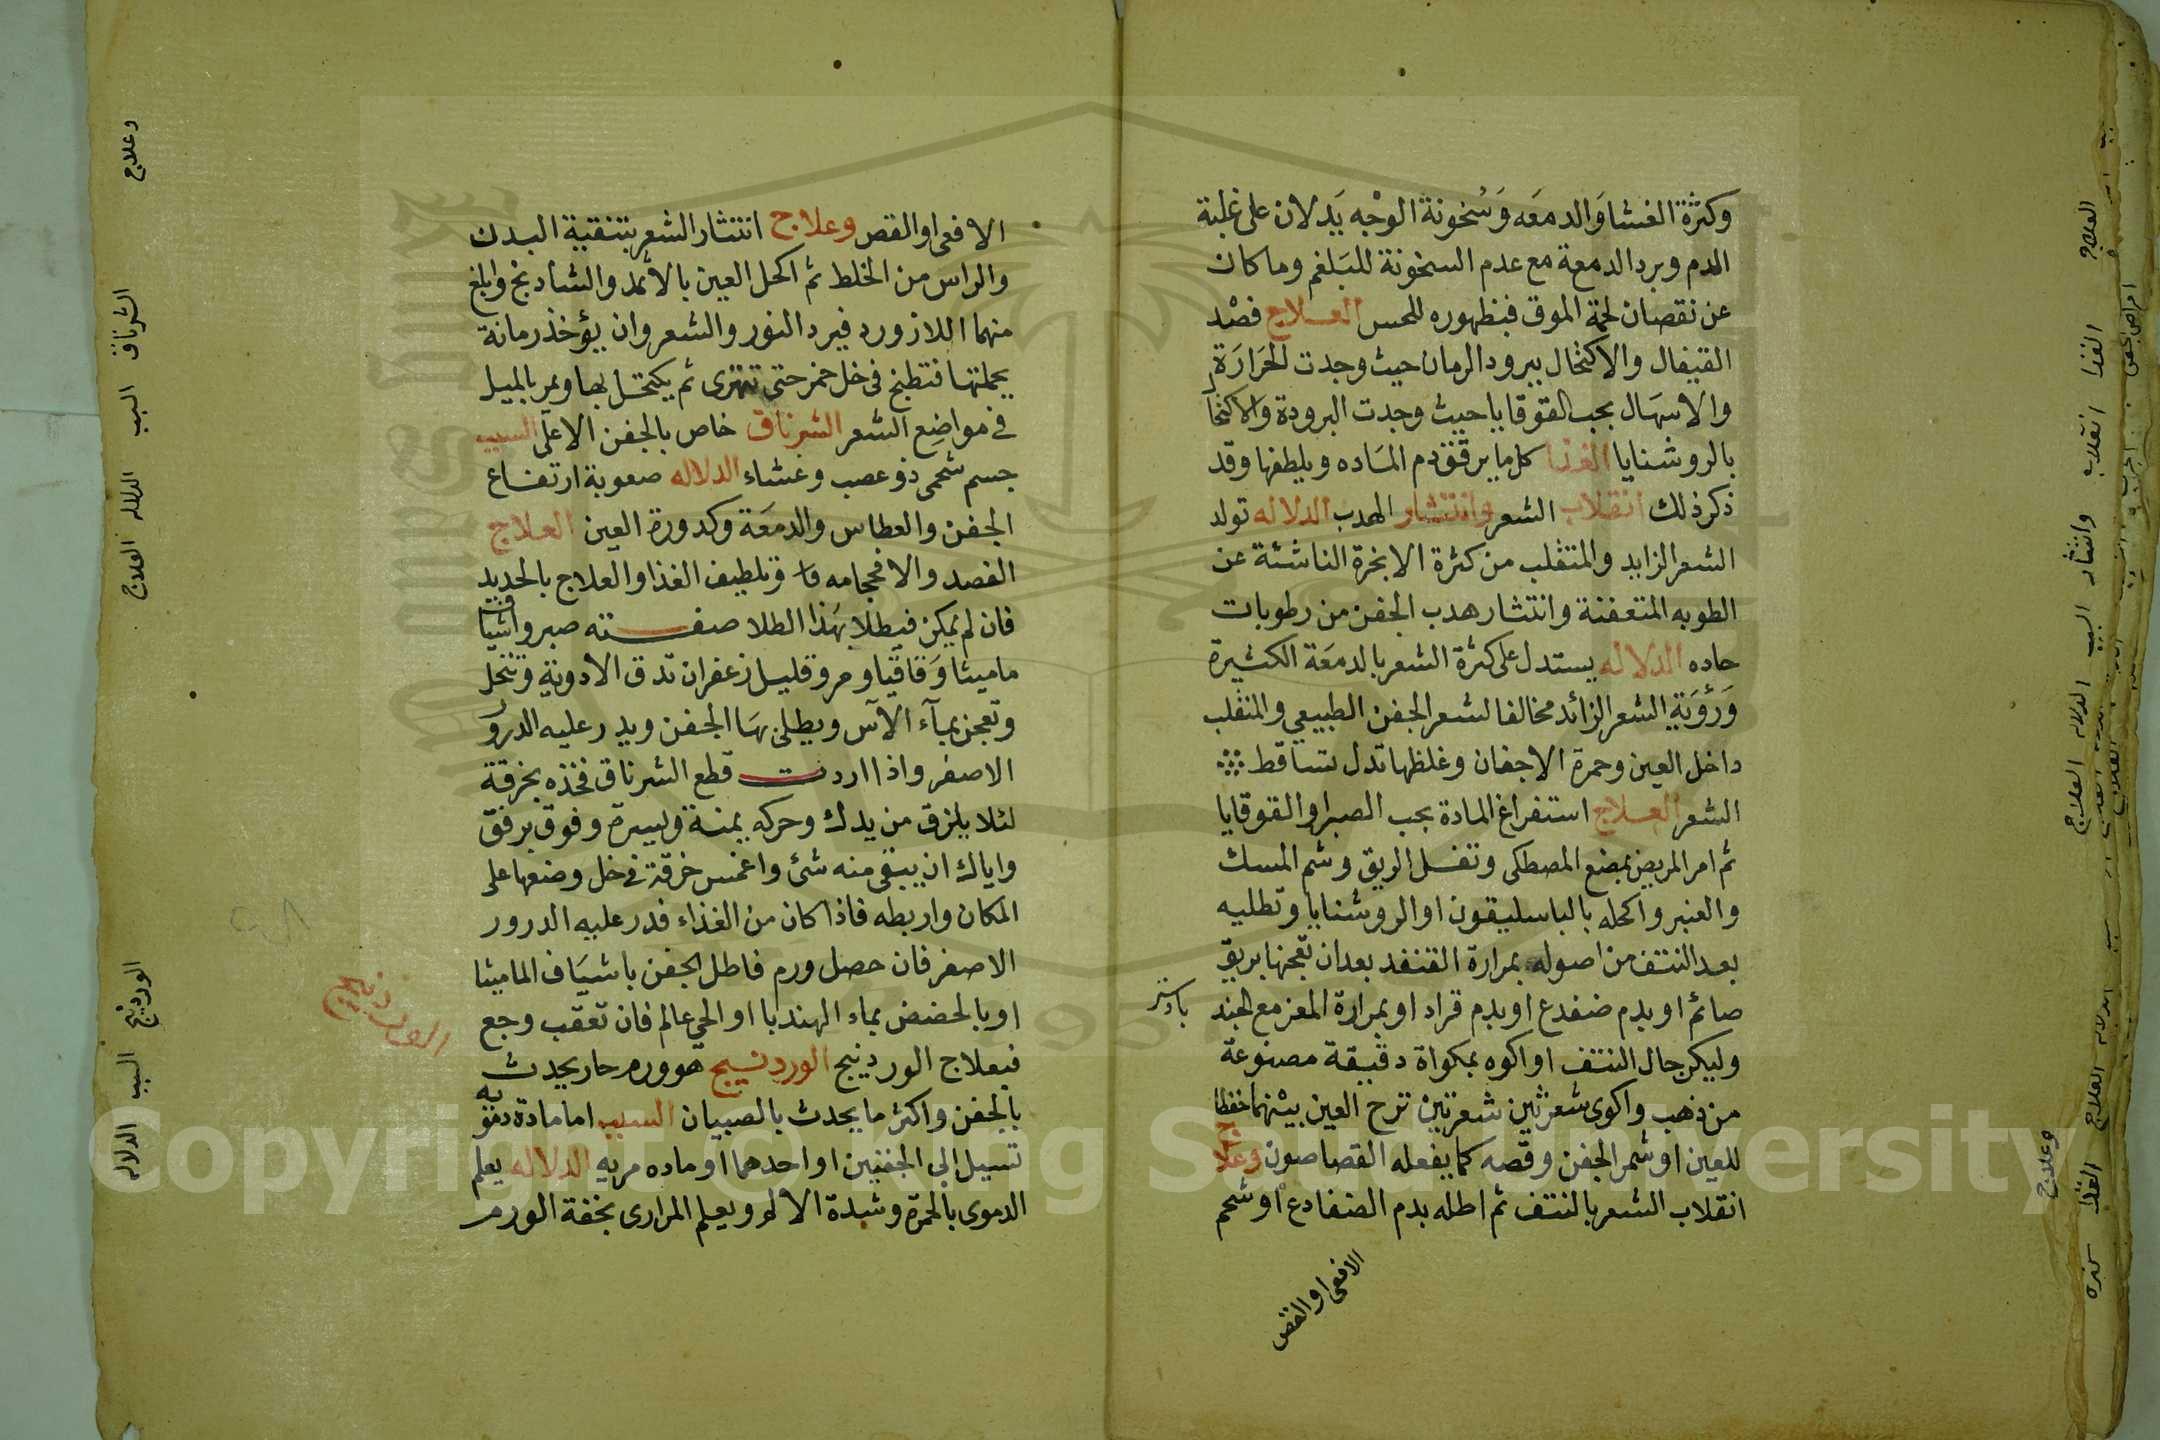 وكثرة الغشا والدمعه وسخونة الوجه يدلان على غلبة
الدم وبرد الدمعة مع عدم السخونة للبلغم وما كان
عن نقصان لحمة الموق فبظهوره للحس العلاج فصد
القيفال والاكتحال ببرود الرمان حيث وجدت الحرارة
والاسهال بحب القوقايا حيث وجدت البرودة والاكتحا
بالروشنايا الغذا كل ما يرقق دم الماده ويلطفها وقد
ذكر ذلك انقلاب الشعر وانتثار الهدب الدلاله تولد
الشعر الزايد والمتقلب من كثرة الابخرة الناشئة عن
الطوبه المتعفنة وانتثار هدب الجفن من رطوبات
حاده الدلاله يستدل على كثرة الشعر بالدمعة الكثيرة
ورؤية الشعر الزائد مخالفا لشعر الجفن الطبيعي والمنقلب
داخل العين وحمرة الاجفان وغلظها تدل بتساقط
الشعر العلاج استفراغ المادة بحب الصبر او القوقايا
ثم امر المريض بمضغ المصطكى وتفل الريق وشم المسك
والعنبر واكحله بالباسليقون او الروشنايا وتطليه
بعد النتف من اصوله بمرارة القنفد بعد ان تعجنها بريق
صائم او بدم ضفدع او بدم قراد او بمرارة المعز مع الجند
بادستر
وليكن حال النتف او اكوه بمكواة دقيقة مصنوعة
من ذهب واكوى شعرتين شعرتين ترح العين بينهما حفظا
للعين او شمر الجفن وقصه كما يفعله القصاصون وعلاج
انقلاب الشعر بالنتف ثم اطله بدم الضفادع او شحم
الافعى او القص
الافعى او القص وعلاج انتثار الشعر بتنقية البدن
والراس من الخلط ثم اكحل العين بالاثمد والشادنج وابلغ
منهما اللازورد فيرد النور والشعر وان يؤخذ رمانة
بجملتها فتطبخ في خل خمر حتى تتهرى ثم يكتحل بها ويمر بالميل
في مواضع الشعر الشرناق خاص بالجفن الاعلى السبب
جسم شحمى ذو عصب وغشاء الدلاله صعوبة ارتفاع
الجفن والعطاس والدمعة وكدورة العين العلاج
الفصد والا فحجامه وتلطيف الغذا والعلاج بالحديد
فان لم يمكن فيطلا بهذا الطلا صفته صبر واشياف
ماميثا وقاقيا ومر وقليل زعفران تدق الادوية وتنخل
وتعجن بمآء الآس ويطلى بها الجفن ويدر عليه الدرور
الاصفر واذا اردت قطع الشرناق فخذه بخرقة
لئلا يلزق من يدك وحركه يمنة ويسرة وفوق برفق
واياك ان يبقى منه شئ واغمس خرقة في خل وضعها على
المكان واربطه فاذا كان من الغذاء فدر عليه الدرور
الاصفر فان حصل ورم فاطل الجفن باشياف الماميثا
او بالحضض بماء الهندبا او الحي عالم فان تعقب وجع
فبعلاج الوردنيج الوردنيج هو ورم حار يحدث
بالجفن واكثر ما يحدث بالصبيان السبب اما مادة دمويه
تسيل الى الجفنين او احدهما او ماده مريه الدلاله يعلم
الدموى بالحمرة وشدة الالم ويعلم المرارى بخفة الورم
الوردنيج
وعلاج
الشرناق
السبب
الدلاله
العلاج
الوردنيج
السبب
الدلاله
العلاج
الغذا
انقلاب
وانتثار
السبب
الدلاله
العلاج
وعلاج
Copyright © King Saud University